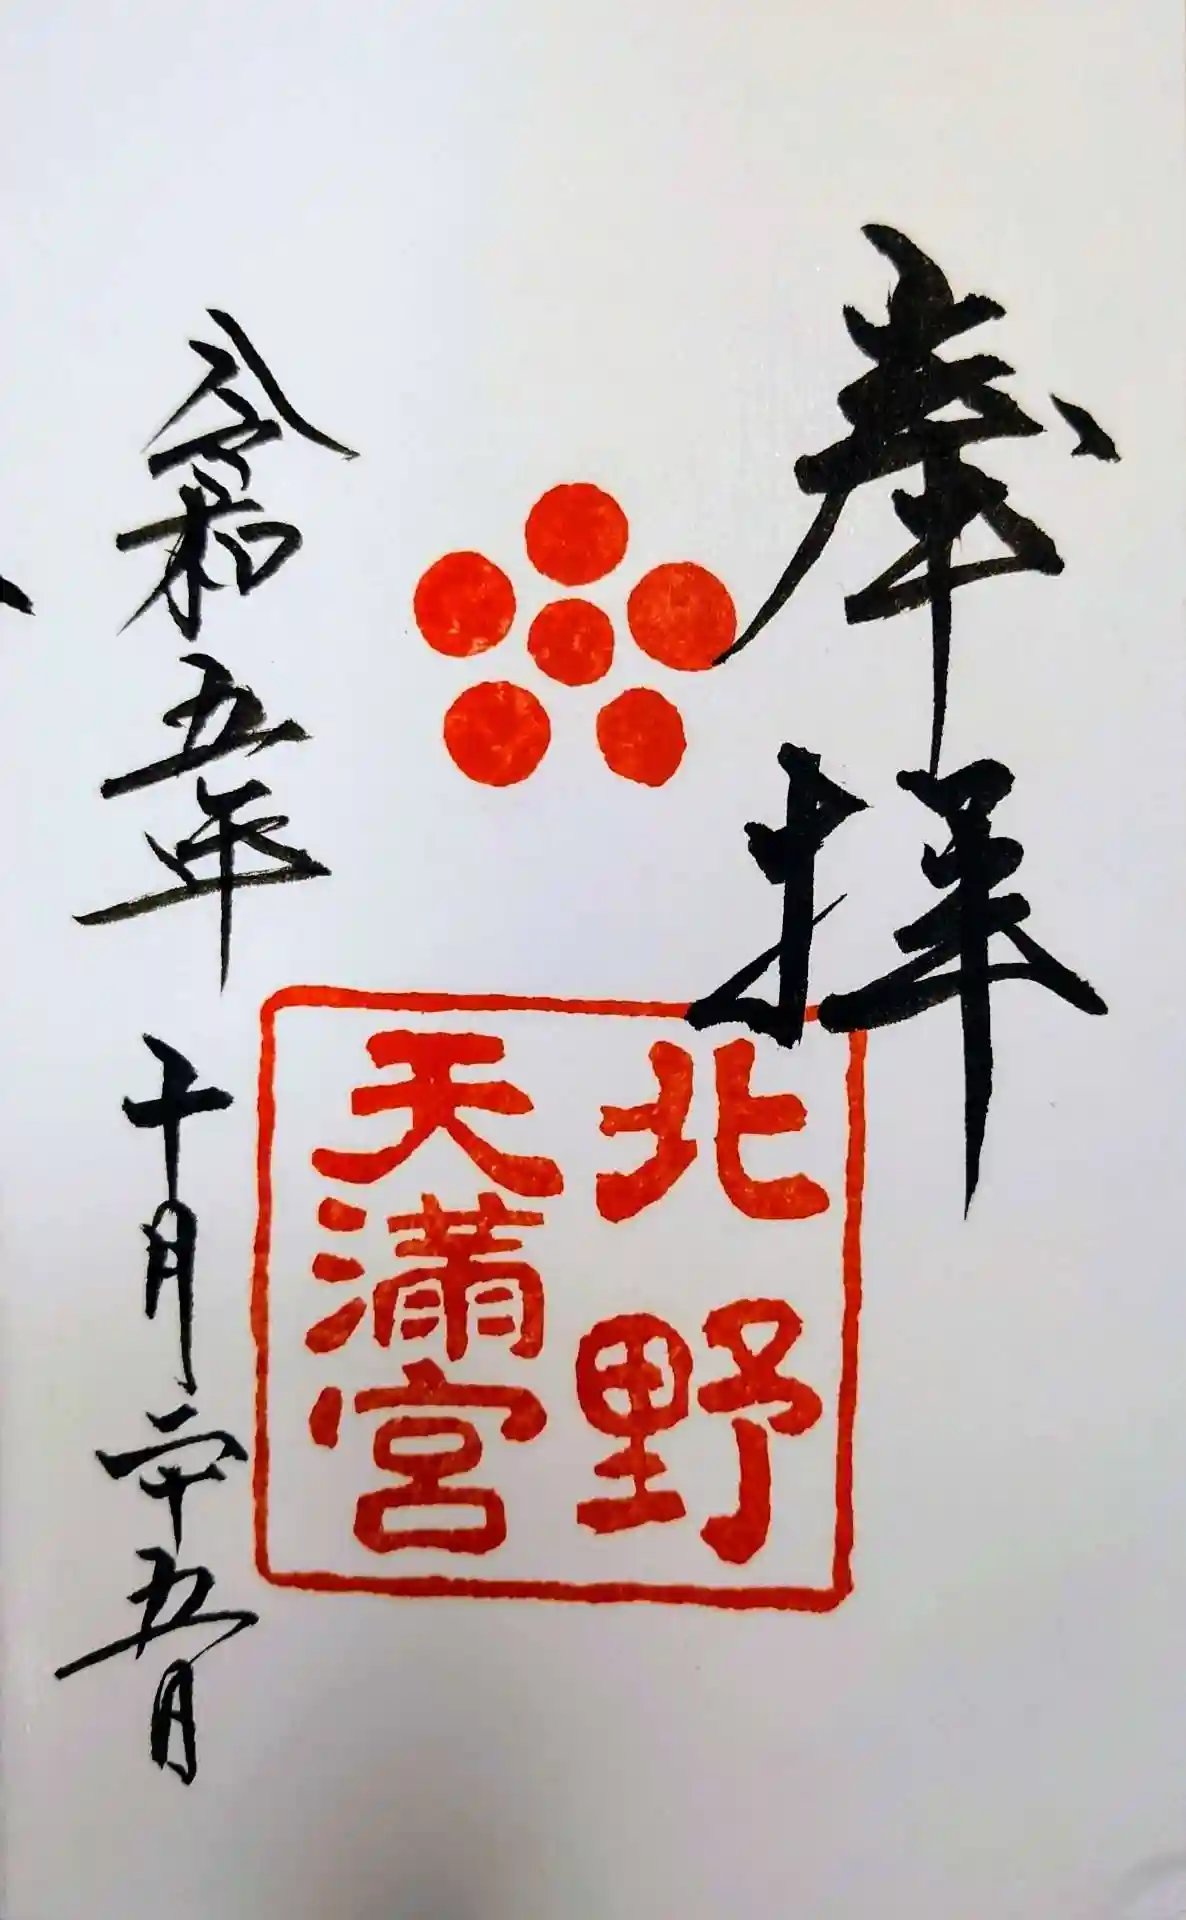 奉拝
北野
天満宮
令和五年十月二十五日